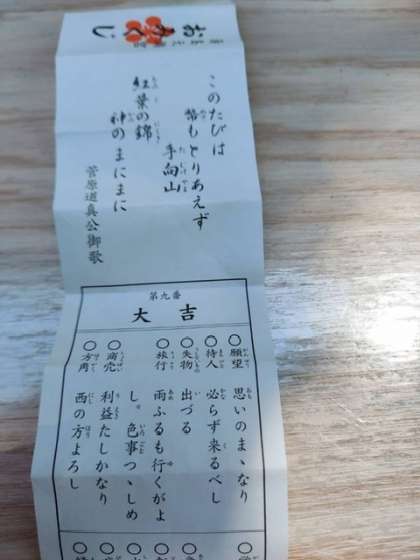 おみくじ
このたびは
幣もとりあえず
手向山
紅葉の錦
神のまにまに
菅原道真公御歌
第九番
大吉
願望 思いのまゝなり
待人 必らず来るべし
失物 出づる
旅行 雨ふるも行くがよし。色事つゝしめ
商売 利益たしかなり
方角 西の方よろし